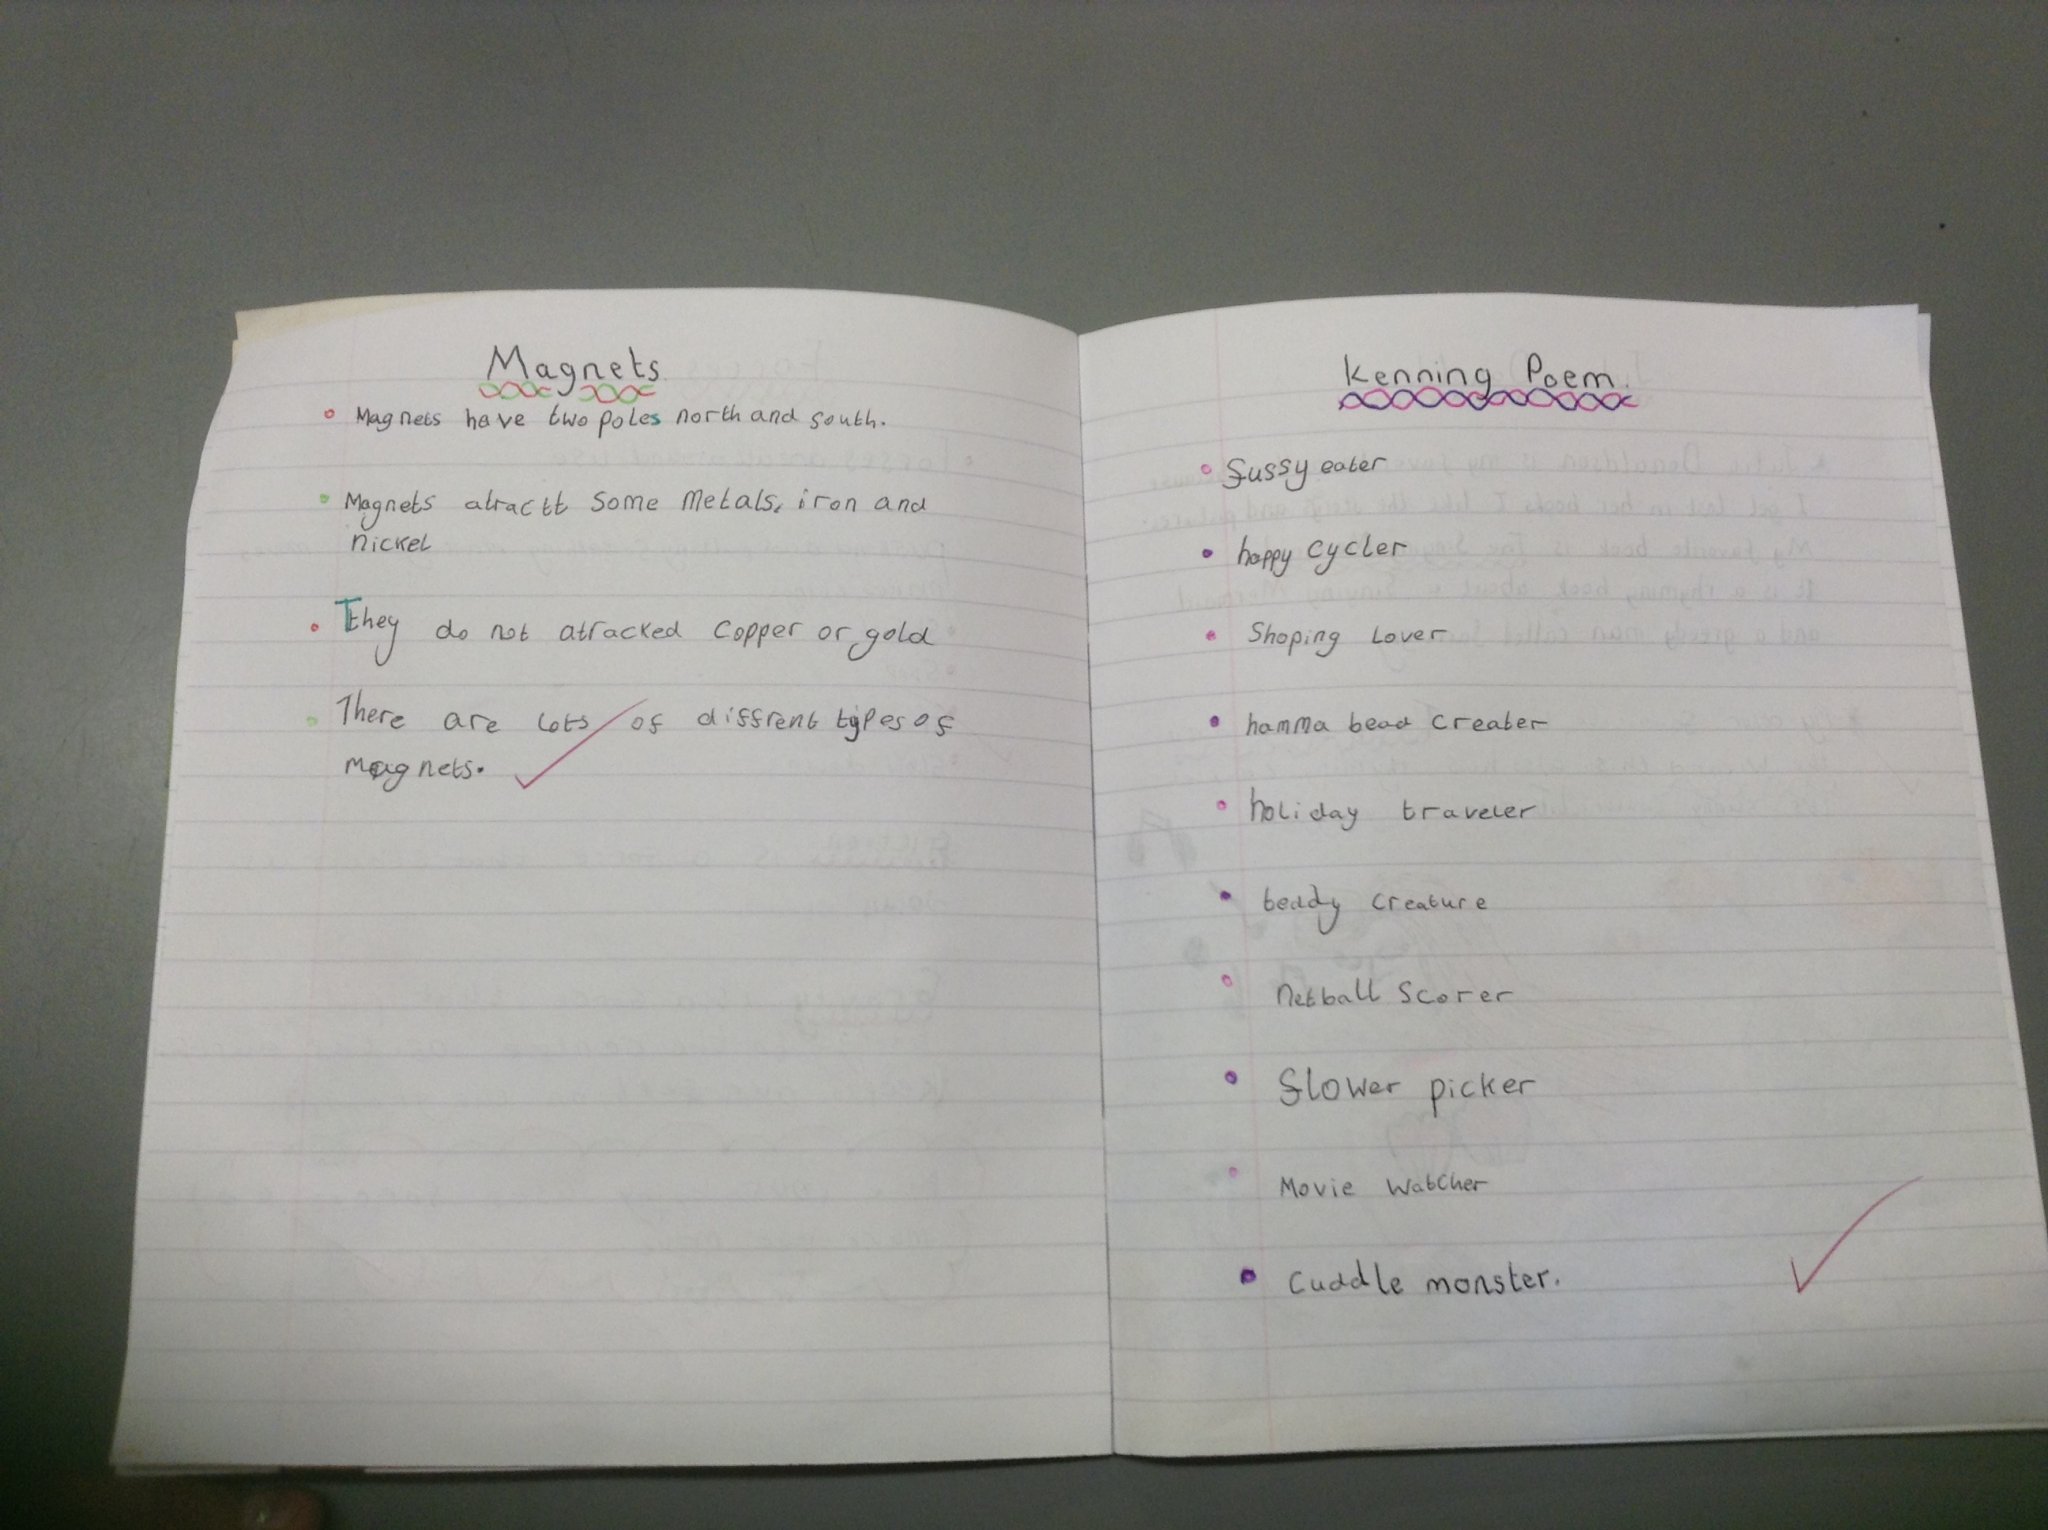 Magnets
Magnets have two poles north and south.
Magnets atractt some metals, iron and
nickel
They do not atracked copper or gold
There are lots of diffrent types of
magnets.
Kenning Poem.
fussy eater
happy cycler
Shoping Lover
hamma bead creater
holiday traveler
teddy creature
netball scorer
flower picker
Movie watcher
Cuddle monster.